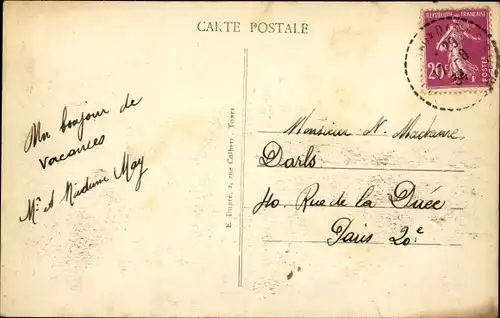 CARTE POSTALE
RÉPUBLIQUE FRANÇAISE
20c
POSTES
34
Un bonjour de
vacances
Mr et Madame May
E. Dupré, 2, rue Colbert, Tours
Monsieur et Madame
Darls
40 Rue de la Duée
Paris 20e